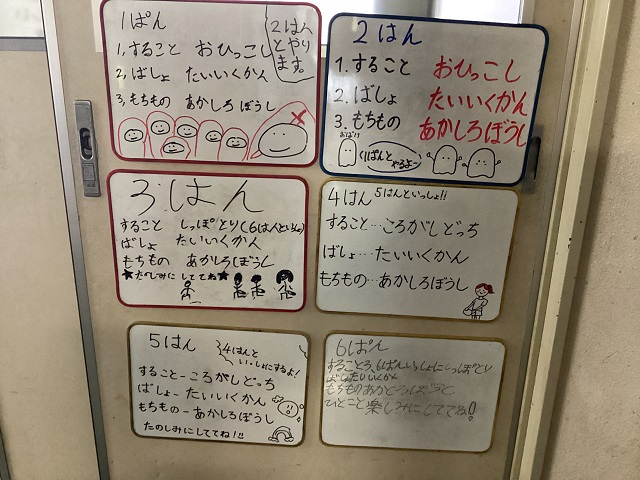 1ぱん
1. すること おひっこし
2. ばしょ たいいくかん
3. もちもの あかしろぼうし
2はん
とやり
ます。
2はん
1. すること おひっこし
2. ばしょ たいいくかん
3. もちもの あかしろぼうし
おばけ
1ぱんと
やるよー
3はん
すること しっぽとり(6はんといっしょ)
ばしょ たいいくかん
もちもの あかしろぼうし
★たのしみにしててね★
4はん 5はんといっしょ!!
すること…ころがしどっち
ばしょ…たいいくかん
もちもの…あかしろぼうし
5はん
4はんと
いっしょにするよ!
すること-ころがしどっち
ばしょ-たいいくかん
もちもの-あかしろぼうし
たのしみにしててね!!
6ぱん
すること3,6ぱんいっしょにしっぽとり
ばしょたいいくかん
もちものあかしろぼうし
ひとこと楽しみにしててね!